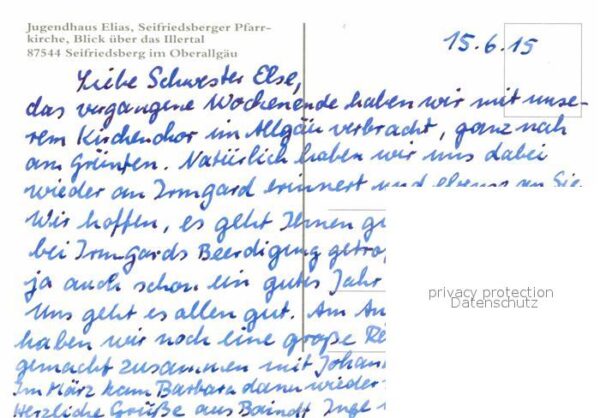 Jugendhaus Elias, Seifriedsberger Pfarr-
kirche, Blick über das Illertal
87544 Seifriedsberg im Oberallgäu
15.6.15
Liebe Schwester Else,
das vergangene Wochenende haben wir mit unse-
rem Kirchenchor im Allgäu verbracht, ganz nah
am Grünten. Natürlich haben wir uns dabei
wieder an Irmgard erinnert und ebenso an Sie.
Wir hoffen, es geht Ihnen gu
bei Irmgards Beerdigung getrof
ja auch schon ein gutes Jahr
Uns geht es allen gut. Am An
haben wir noch eine große Re
gemacht zusammen mit Johan
Im März kam Barbara dann wieder
Herzliche Grüße aus Baindt Inge
privacy protection
Datenschutz